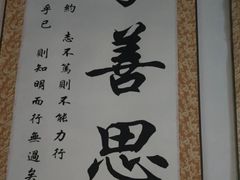 善思
約 志不篤則不能力行
乎已 則知明而行無過矣